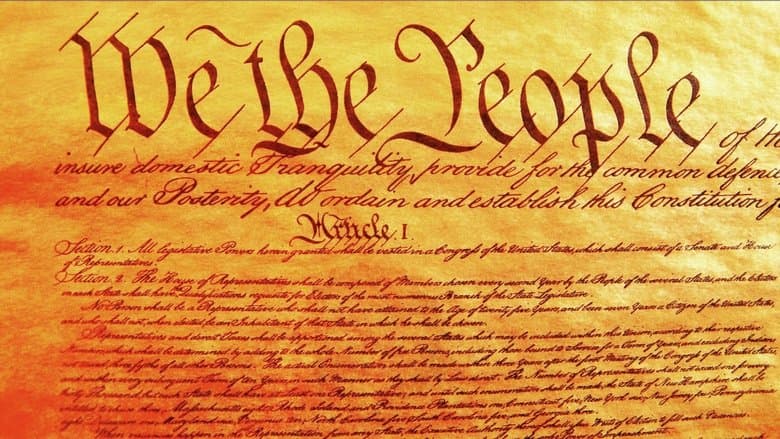 We the People of th
insure domestic Tranquility, provide for the common defenc
and our Posterity, do ordain and establish this Constitution f
Article I
Section 1. All legislative Powers herein granted shall be vested in a Congress of the United States, which shall consist of a Senate and House
of Representatives.
Section 2. The House of Representatives shall be composed of Members chosen every second Year by the People of the several States, and the Electors
in each State shall have the Qualifications requisite for Electors of the most numerous Branch of the State Legislature.
No Person shall be a Representative who shall not have attained to the Age of twenty five Years, and been seven Years a Citizen of the United States,
and who shall not, when elected, be an Inhabitant of that State in which he shall be chosen.
Representatives and direct Taxes shall be apportioned among the several States which may be included within this Union, according to their respective
Numbers, which shall be determined by adding to the whole Number of free Persons, including those bound to Service for a Term of Years, and excluding Indians
fifths of all other Persons. The actual Enumeration shall be made within three Years after the first Meeting of the Congress of the United States
every subsequent Term of ten Years, in such Manner as they shall by Law direct. The Number of Representatives shall not exceed one for every
thirty Thousand, but each State shall have at Least one Representative; and until such enumeration shall be made, the State of New Hampshire shall be
entitled to chuse three, Massachusetts eight, Rhode Island and Providence Plantations one, Connecticut five, New York six, New Jersey four, Pennsylvania
eight, Delaware one, Maryland six, Virginia ten, North Carolina five, South Carolina five, and Georgia three.
When vacancies happen in the Representation from any State, the Executive Authority thereof shall issue Writs of Election to fill such Vacancies.